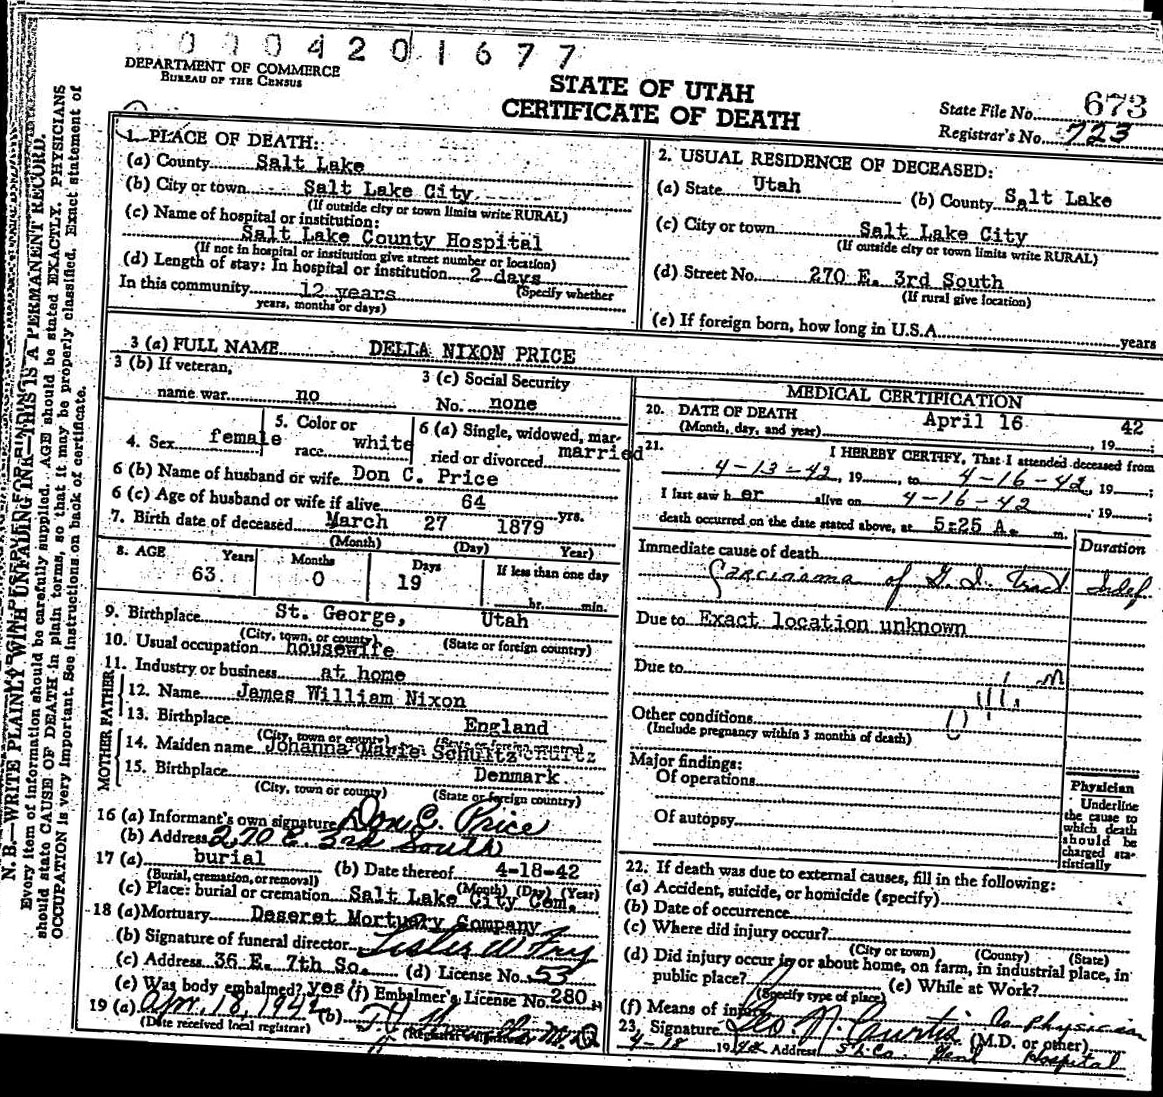 0704201677
DEPARTMENT OF COMMERCE
BUREAU OF THE CENSUS
STATE OF UTAH
CERTIFICATE OF DEATH
State File No. 673
Registrar's No. 723
1. PLACE OF DEATH:
(a) County Salt Lake
(b) City or town Salt Lake City
(If outside city or town limits write RURAL)
(c) Name of hospital or institution:
Salt Lake County Hospital
(If not in hospital or institution give street number or location)
(d) Length of stay: In hospital or institution 2 days
In this community 12 years (Specify whether
years, months or days)
2. USUAL RESIDENCE OF DECEASED:
(a) State Utah (b) County Salt Lake
(c) City or town Salt Lake City
(If outside city or town limits write RURAL)
(d) Street No. 270 E. 3rd South
(If rural give location)
(e) If foreign born, how long in U.S.A. years
3 (a) FULL NAME DELLA NIXON PRICE
3 (b) If veteran,
name war. no
3 (c) Social Security
No. none
4. Sex female
5. Color or
race white
6 (a) Single, widowed, mar-
ried or divorced married
6 (b) Name of husband or wife Don C. Price
6 (c) Age of husband or wife if alive 64 yrs.
7. Birth date of deceased March 27 1879
(Month) (Day) Year)
8. AGE Years Months Days If less than one day
63 0 19 hr. min.
9. Birthplace St. George, Utah
(City, town, or county) (State or foreign country)
10. Usual occupation housewife
11. Industry or business at home
FATHER
12. Name James William Nixon
13. Birthplace England
(City, town or county) (State or foreign country)
MOTHER
14. Maiden name Johanna Marie Schultz
15. Birthplace Denmark
(City, town or county) (State or foreign country)
16 (a) Informant's own signature Don C. Price
(b) Address 270 E. 3rd South
17 (a) burial (b) Date thereof 4-18-42
(Burial, cremation, or removal) (Month) (Day) (Year)
(c) Place: burial or cremation Salt Lake City Cem.
18 (a) Mortuary Deseret Mortuary Company
(b) Signature of funeral director
(c) Address 36 E. 7th So. (d) License No. 53
(e) Was body embalmed? yes (f) Embalmer's License No. 280
19 (a) Apr. 18, 1942 (b) M.D.
(Date received local registrar) (Registrar's signature)
MEDICAL CERTIFICATION
20. DATE OF DEATH April 16 42
(Month, day, and year) 19
21. I HEREBY CERTIFY, That I attended deceased from
4-13-42, 19, to 4-16-42, 19;
I last saw h er alive on 4-16-42, 19;
death occurred on the date stated above, at 5:25 A. m.
Duration
Immediate cause of death
Carcinoma of G.I. tract Indef
Due to Exact location unknown
Due to
Other conditions
(Include pregnancy within 3 months of death)
Major findings:
Of operations
Of autopsy
Physician
Underline
the cause to
which death
should be
charged sta-
tistically
22. If death was due to external causes, fill in the following:
(a) Accident, suicide, or homicide (specify)
(b) Date of occurrence
(c) Where did injury occur?
(City or town) (County) (State)
(d) Did injury occur in or about home, on farm, in industrial place, in
public place? (e) While at Work?
(Specify type of place)
(f) Means of injury
23. Signature Geo N. Curtis Co physician (M.D. or other)
4-18 1942 Address S.L. Co. Genl Hospital
N. B.—WRITE PLAINLY WITH UNFADING INK—THIS IS A PERMANENT RECORD.
Every item of information should be carefully supplied. AGE should be stated EXACTLY. PHYSICIANS
should state CAUSE OF DEATH in plain terms, so that it may be properly classified. Exact statement of
OCCUPATION is very important. See instructions on back of certificate.